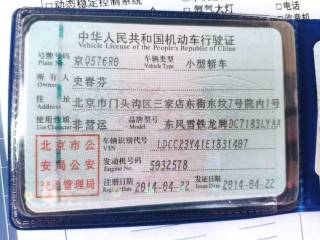 动态稳定控制系统
氙气大灯
电话
收音机
中华人民共和国机动车行驶证
Vehicle License of the People's Republic of China
号牌号码 Plate No. 京Q576R0 车辆类型 Vehicle Type 小型轿车
所有人 Owner 史春芬
住址 Address 北京市门头沟区三家店东街东坟7号院内1号
使用性质 Use Character 非营运 品牌型号 Model 东风雪铁龙牌DC7183LYAA
北京市公安局公安交通管理局
车辆识别代号 VIN LDCC23Y41E1831407
发动机号码 Engine No. 5032578
注册日期 Register Date 2014-04-22 发证日期 Issue Date 2014-04-22